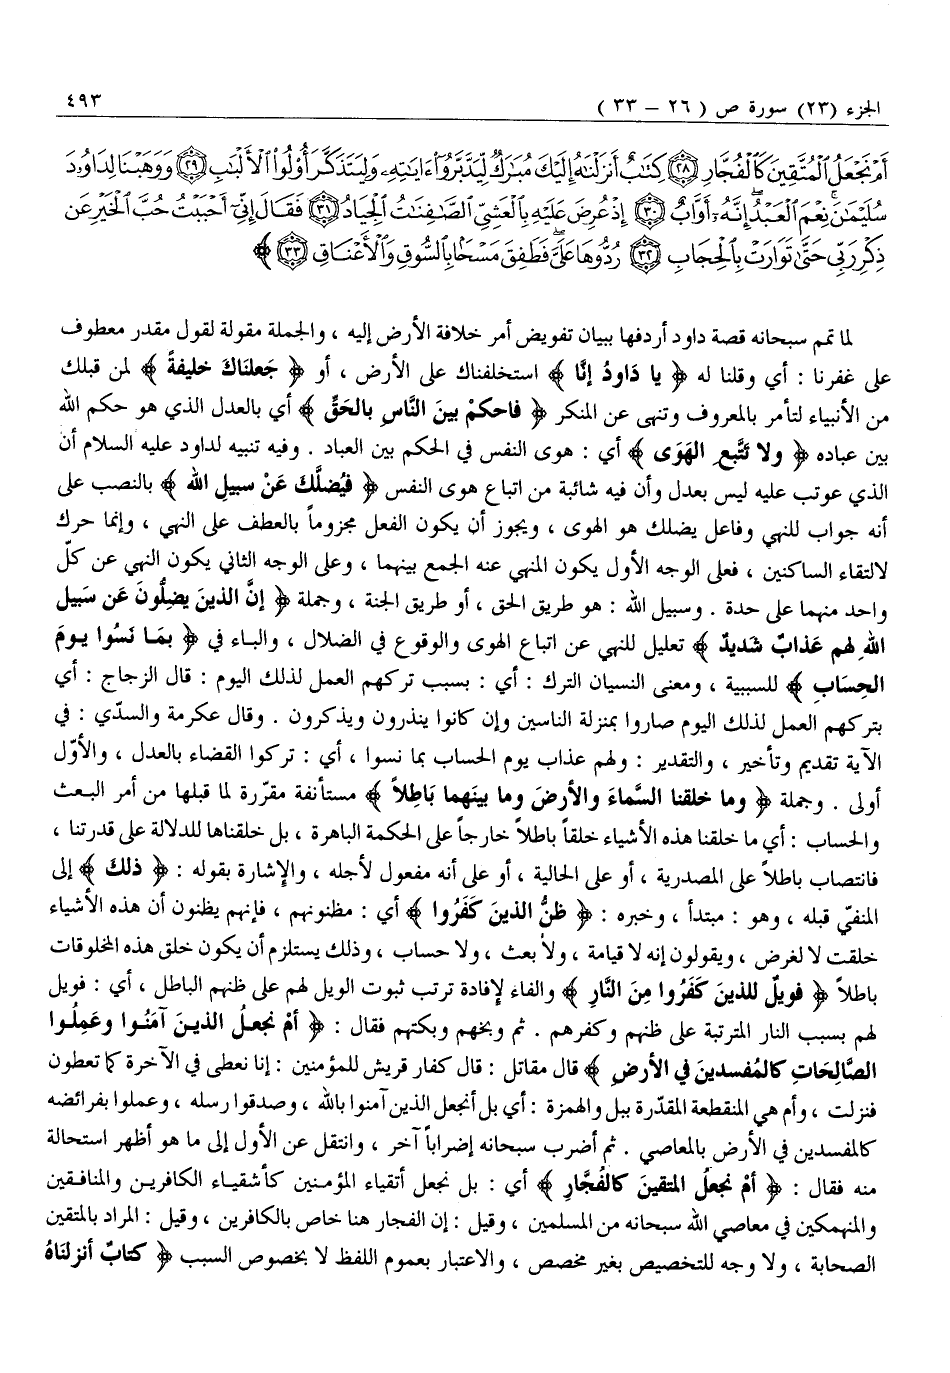 الجزء (٢٣) سورة ص ( ٢٦ – ٣٣ ) ٤٩٣
أَمْ نَجْعَلُ الْمُتَّقِينَ كَالْفُجَّارِ ﴿٢٨﴾ كِتَابٌ أَنزَلْنَاهُ إِلَيْكَ مُبَارَكٌ لِّيَدَّبَّرُوا آيَاتِهِ وَلِيَتَذَكَّرَ أُولُوا الْأَلْبَابِ ﴿٢٩﴾ وَوَهَبْنَا لِدَاوُودَ
سُلَيْمَانَ نِعْمَ الْعَبْدُ إِنَّهُ أَوَّابٌ ﴿٣٠﴾ إِذْ عُرِضَ عَلَيْهِ بِالْعَشِيِّ الصَّافِنَاتُ الْجِيَادُ ﴿٣١﴾ فَقَالَ إِنِّي أَحْبَبْتُ حُبَّ الْخَيْرِ عَن
ذِكْرِ رَبِّي حَتَّى تَوَارَتْ بِالْحِجَابِ ﴿٣٢﴾ رُدُّوهَا عَلَيَّ فَطَفِقَ مَسْحًا بِالسُّوقِ وَالْأَعْنَاقِ ﴿٣٣﴾ ﴾
لما تمم سبحانه قصة داود أردفها ببيان تفويض أمر خلافة الأرض إليه ، والجملة مقولة لقول مقدر معطوف
على غفرنا : أي وقلنا له ﴿ يا دَاودُ إنَّا ﴾ استخلفناك على الأرض ، أو ﴿ جَعلنَاكَ خليفةً ﴾ لمن قبلك
من الأنبياء لتأمر بالمعروف وتنهى عن المنكر ﴿ فاحكمْ بينَ النَّاسِ بالحَقِّ ﴾ أي بالعدل الذي هو حكم الله
بين عباده ﴿ ولا تتَّبعِ الهَوَى ﴾ أي : هوى النفس في الحكم بين العباد . وفيه تنبيه لداود عليه السلام أن
الذي عوتب عليه ليس بعدل وأن فيه شائبة من اتباع هوى النفس ﴿ فيُضلَّكَ عَنْ سبيلِ الله ﴾ بالنصب على
أنه جواب للنهي وفاعل يضلك هو الهوى ، ويجوز أن يكون الفعل مجزوماً بالعطف على النهي ، وإنما حرك
لالتقاء الساكنين ، فعلى الوجه الأول يكون المنهي عنه الجمع بينهما ، وعلى الوجه الثاني يكون النهي عن كلّ
واحد منهما على حدة . وسبيل الله : هو طريق الحق ، أو طريق الجنة ، وجملة ﴿ إنَّ الذينَ يضِلُّونَ عَن سَبيل
اللهِ لهم عَذابٌ شَديدٌ ﴾ تعليل للنهي عن اتباع الهوى والوقوع في الضلال ، والباء في ﴿ بمَا نَسُوا يومَ
الحِسَابِ ﴾ للسببية ، ومعنى النسيان الترك : أي : بسبب تركهم العمل لذلك اليوم : قال الزجاج : أي
بتركهم العمل لذلك اليوم صاروا بمنزلة الناسين وإن كانوا ينذرون ويذكرون . وقال عكرمة والسدّي : في
الآية تقديم وتأخير ، والتقدير : ولهم عذاب يوم الحساب بما نسوا ، أي : تركوا القضاء بالعدل ، والأوّل
أولى . وجملة ﴿ وما خلقنا السَّماءَ والأرضَ وما بينَهما بَاطِلاً ﴾ مستأنفة مقرّرة لما قبلها من أمر البعث
والحساب : أي ما خلقنا هذه الأشياء خلقاً باطلاً خارجاً على الحكمة الباهرة ، بل خلقناها للدلالة على قدرتنا ،
فانتصاب باطلاً على المصدرية ، أو على الحالية ، أو على أنه مفعول لأجله ، والإشارة بقوله : ﴿ ذلكَ ﴾ إلى
المنفيّ قبله ، وهو : مبتدأ ، وخبره : ﴿ ظنُّ الذينَ كفَرُوا ﴾ أي : مظنونهم ، فإنهم يظنون أن هذه الأشياء
خلقت لا لغرض ، ويقولون إنه لا قيامة ، ولا بعث ، ولا حساب ، وذلك يستلزم أن يكون خلق هذه المخلوقات
باطلاً ﴿ فويلٌ للذينَ كفَرُوا مِنَ النَّارِ ﴾ والفاء لإفادة ترتب ثبوت الويل لهم على ظنهم الباطل ، أي : فويل
لهم بسبب النار المترتبة على ظنهم وكفرهم . ثم وبخهم وبكتهم فقال : ﴿ أمْ نجعلُ الذينَ آمَنُوا وعَمِلُوا
الصَّالِحَاتِ كالمُفسدينَ في الأرضِ ﴾ قال مقاتل : قال كفار قريش للمؤمنين : إنا نعطى في الآخرة كما تعطون
فنزلت ، وأم هي المنقطعة المقدّرة ببل والهمزة : أي بل أنجعل الذين آمنوا بالله ، وصدقوا رسله ، وعملوا بفرائضه
كالمفسدين في الأرض بالمعاصي . ثم أضرب سبحانه إضراباً آخر ، وانتقل عن الأول إلى ما هو أظهر استحالة
منه فقال : ﴿ أمْ نجعلُ المتقينَ كالفُجَّارِ ﴾ أي : بل نجعل أتقياء المؤمنين كأشقياء الكافرين والمنافقين
والمنهمكين في معاصي الله سبحانه من المسلمين ، وقيل : إن الفجار هنا خاص بالكافرين ، وقيل : المراد بالمتقين
الصحابة ، ولا وجه للتخصيص بغير مخصص ، والاعتبار بعموم اللفظ لا بخصوص السبب ﴿ كتابٌ أنزلنَاهُ